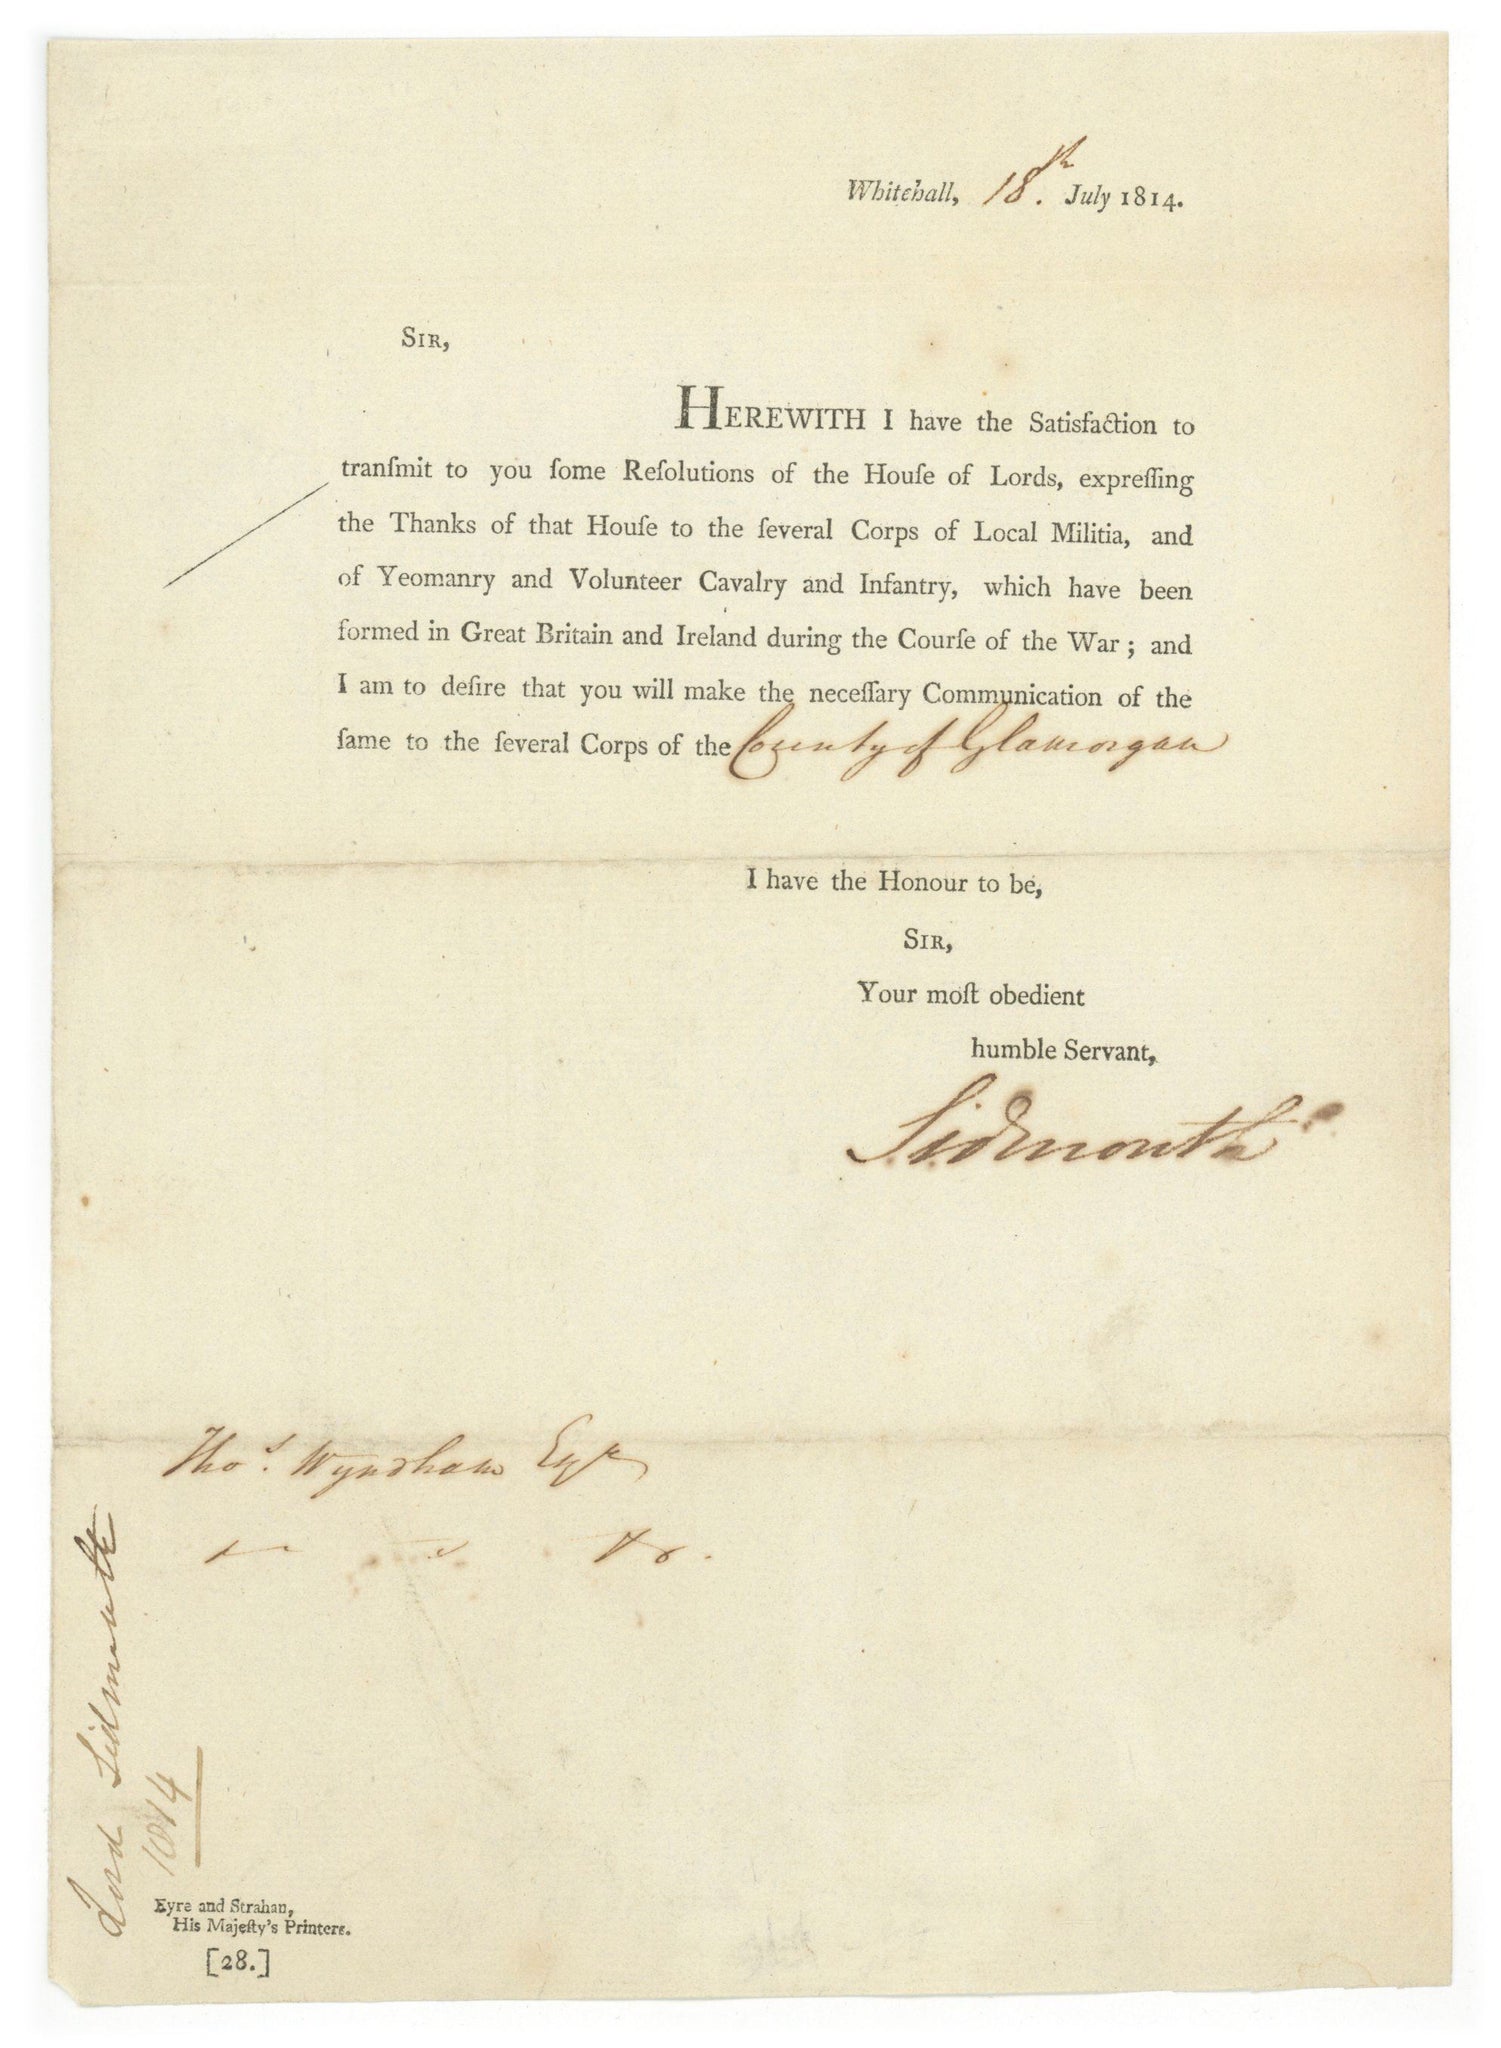 Whitehall, 18th. July 1814.
SIR,
HEREWITH I have the Satisfaction to
tranſmit to you ſome Reſolutions of the Houſe of Lords, expreſſing
the Thanks of that Houſe to the ſeveral Corps of Local Militia, and
of Yeomanry and Volunteer Cavalry and Infantry, which have been
formed in Great Britain and Ireland during the Courſe of the War; and
I am to deſire that you will make the neceſſary Communication of the
ſame to the ſeveral Corps of the County of Glamorgan
I have the Honour to be,
SIR,
Your moſt obedient
humble Servant,
Sidmouth
Thos. Wyndham Esqr
Lord Sidmouth
1814
Eyre and Strahan,
His Majeſty's Printers.
[28.]